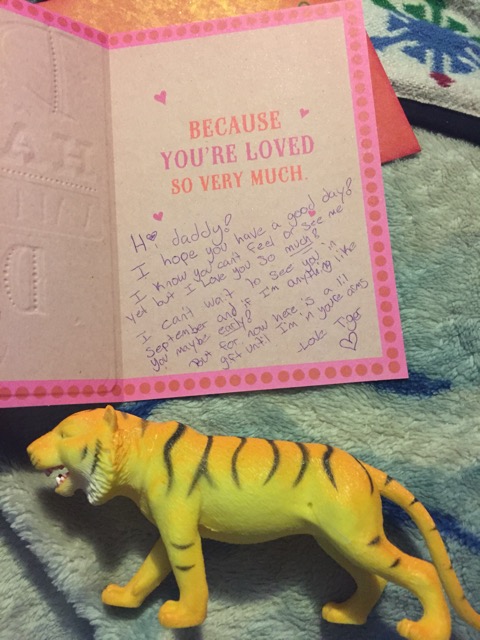 BECAUSE
YOU'RE LOVED
SO VERY MUCH.
Hi daddy!
I hope you have a good day!
I know you can't feel or see me
yet but I Love you so much!
I can't wait to see you in
September and if I'm anything like
you maybe early!
But for now here is a lil
gift until I'm in youre arms
-Love Tiger